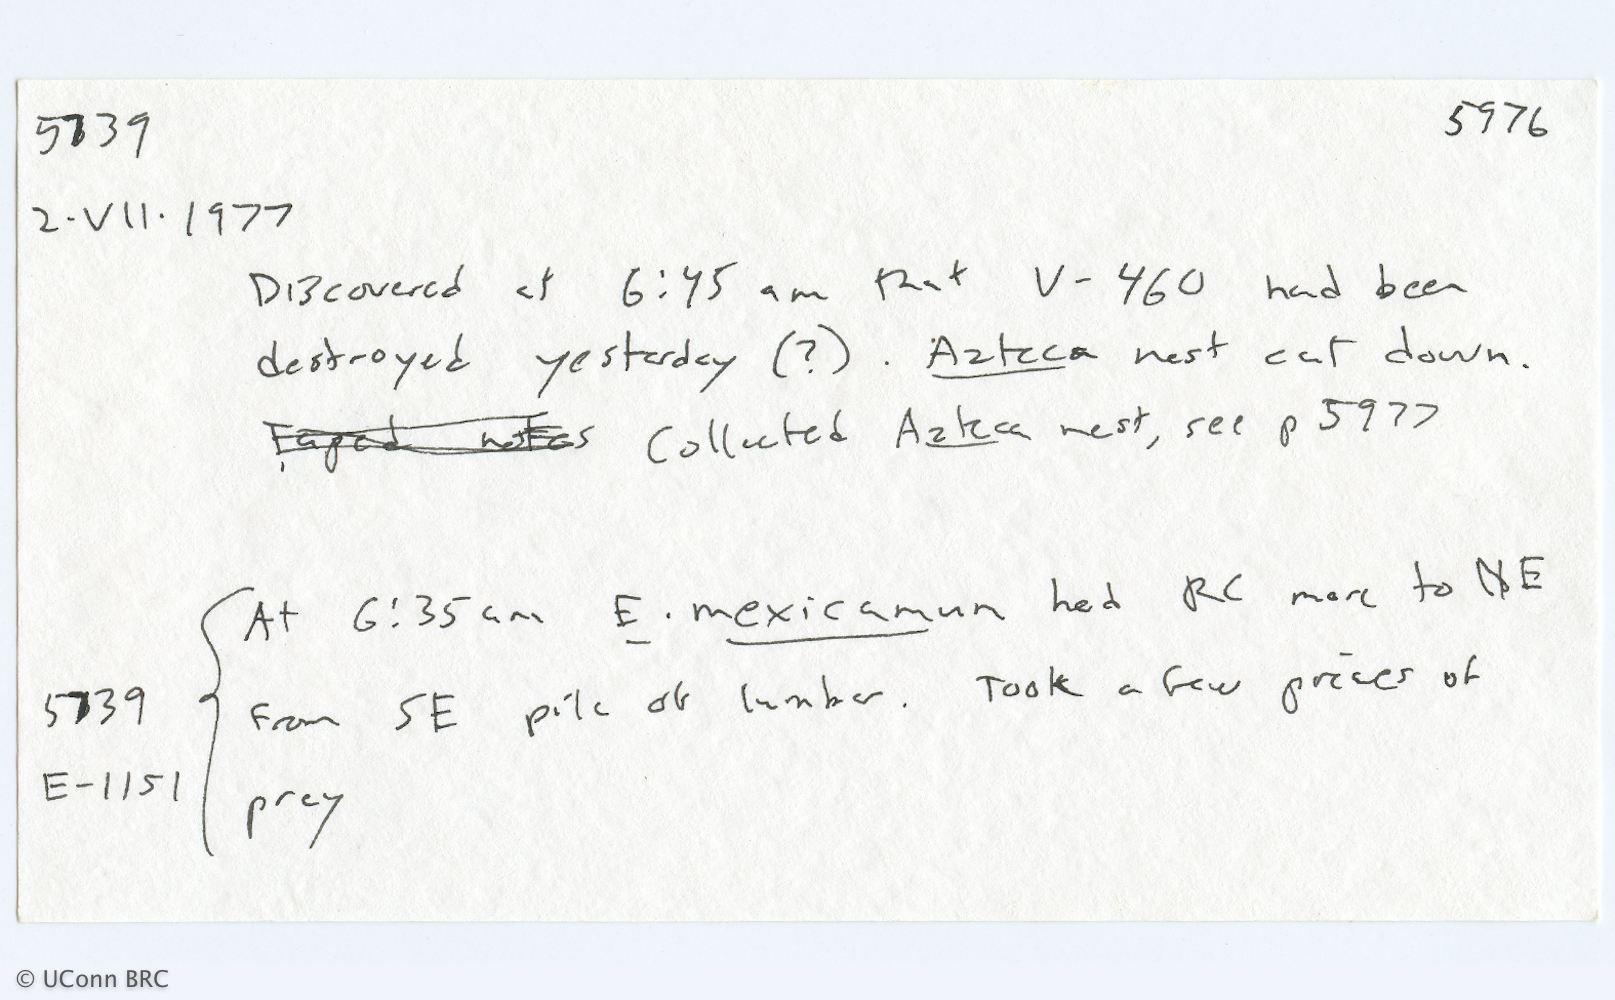 5739 5976
2·VII·1977
Discovered at 6:45 am that V-460 had been
destroyed yesterday (?). Azteca nest cut down.
Taped notes Collected Azteca nest, see p 5977
At 6:35 am E. mexicanum had RC more to NE
5739 from SE pile of lumber. Took a few pieces of
E-1151 prey
© UConn BRC